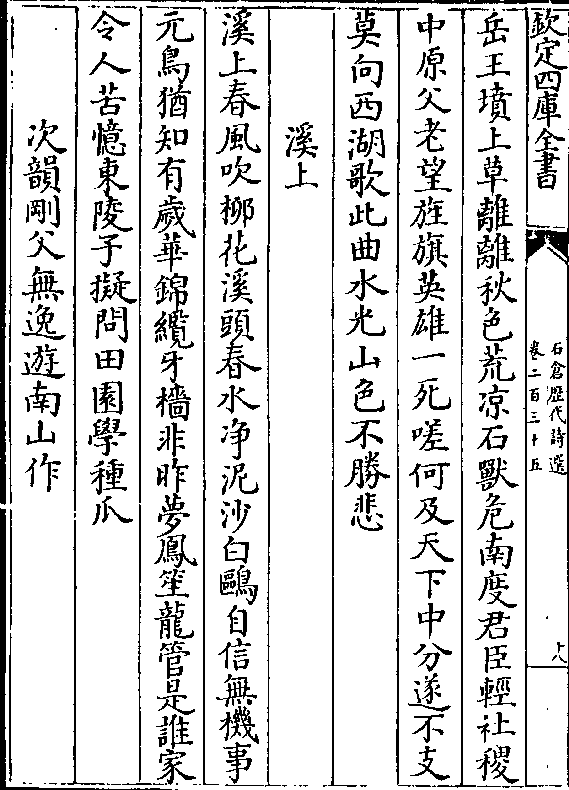 欽定四庫全書
石倉歴代詩選
卷二百三十五
十八
岳王墳上草離離秋色荒凉石獸危南度君臣輕社稷
中原父老望旌旗英雄一死嗟何及天下中分遂不支
莫向西湖歌此曲水光山色不勝悲
溪上
溪上春風吹栁花溪頭春水净泥沙白鷗自信無機事
元鳥猶知有歲華錦纜牙檣非昨夢鳳笙龍管是誰家
令人苦憶東陵子擬問田園學種瓜
次韻剛父無逸遊南山作